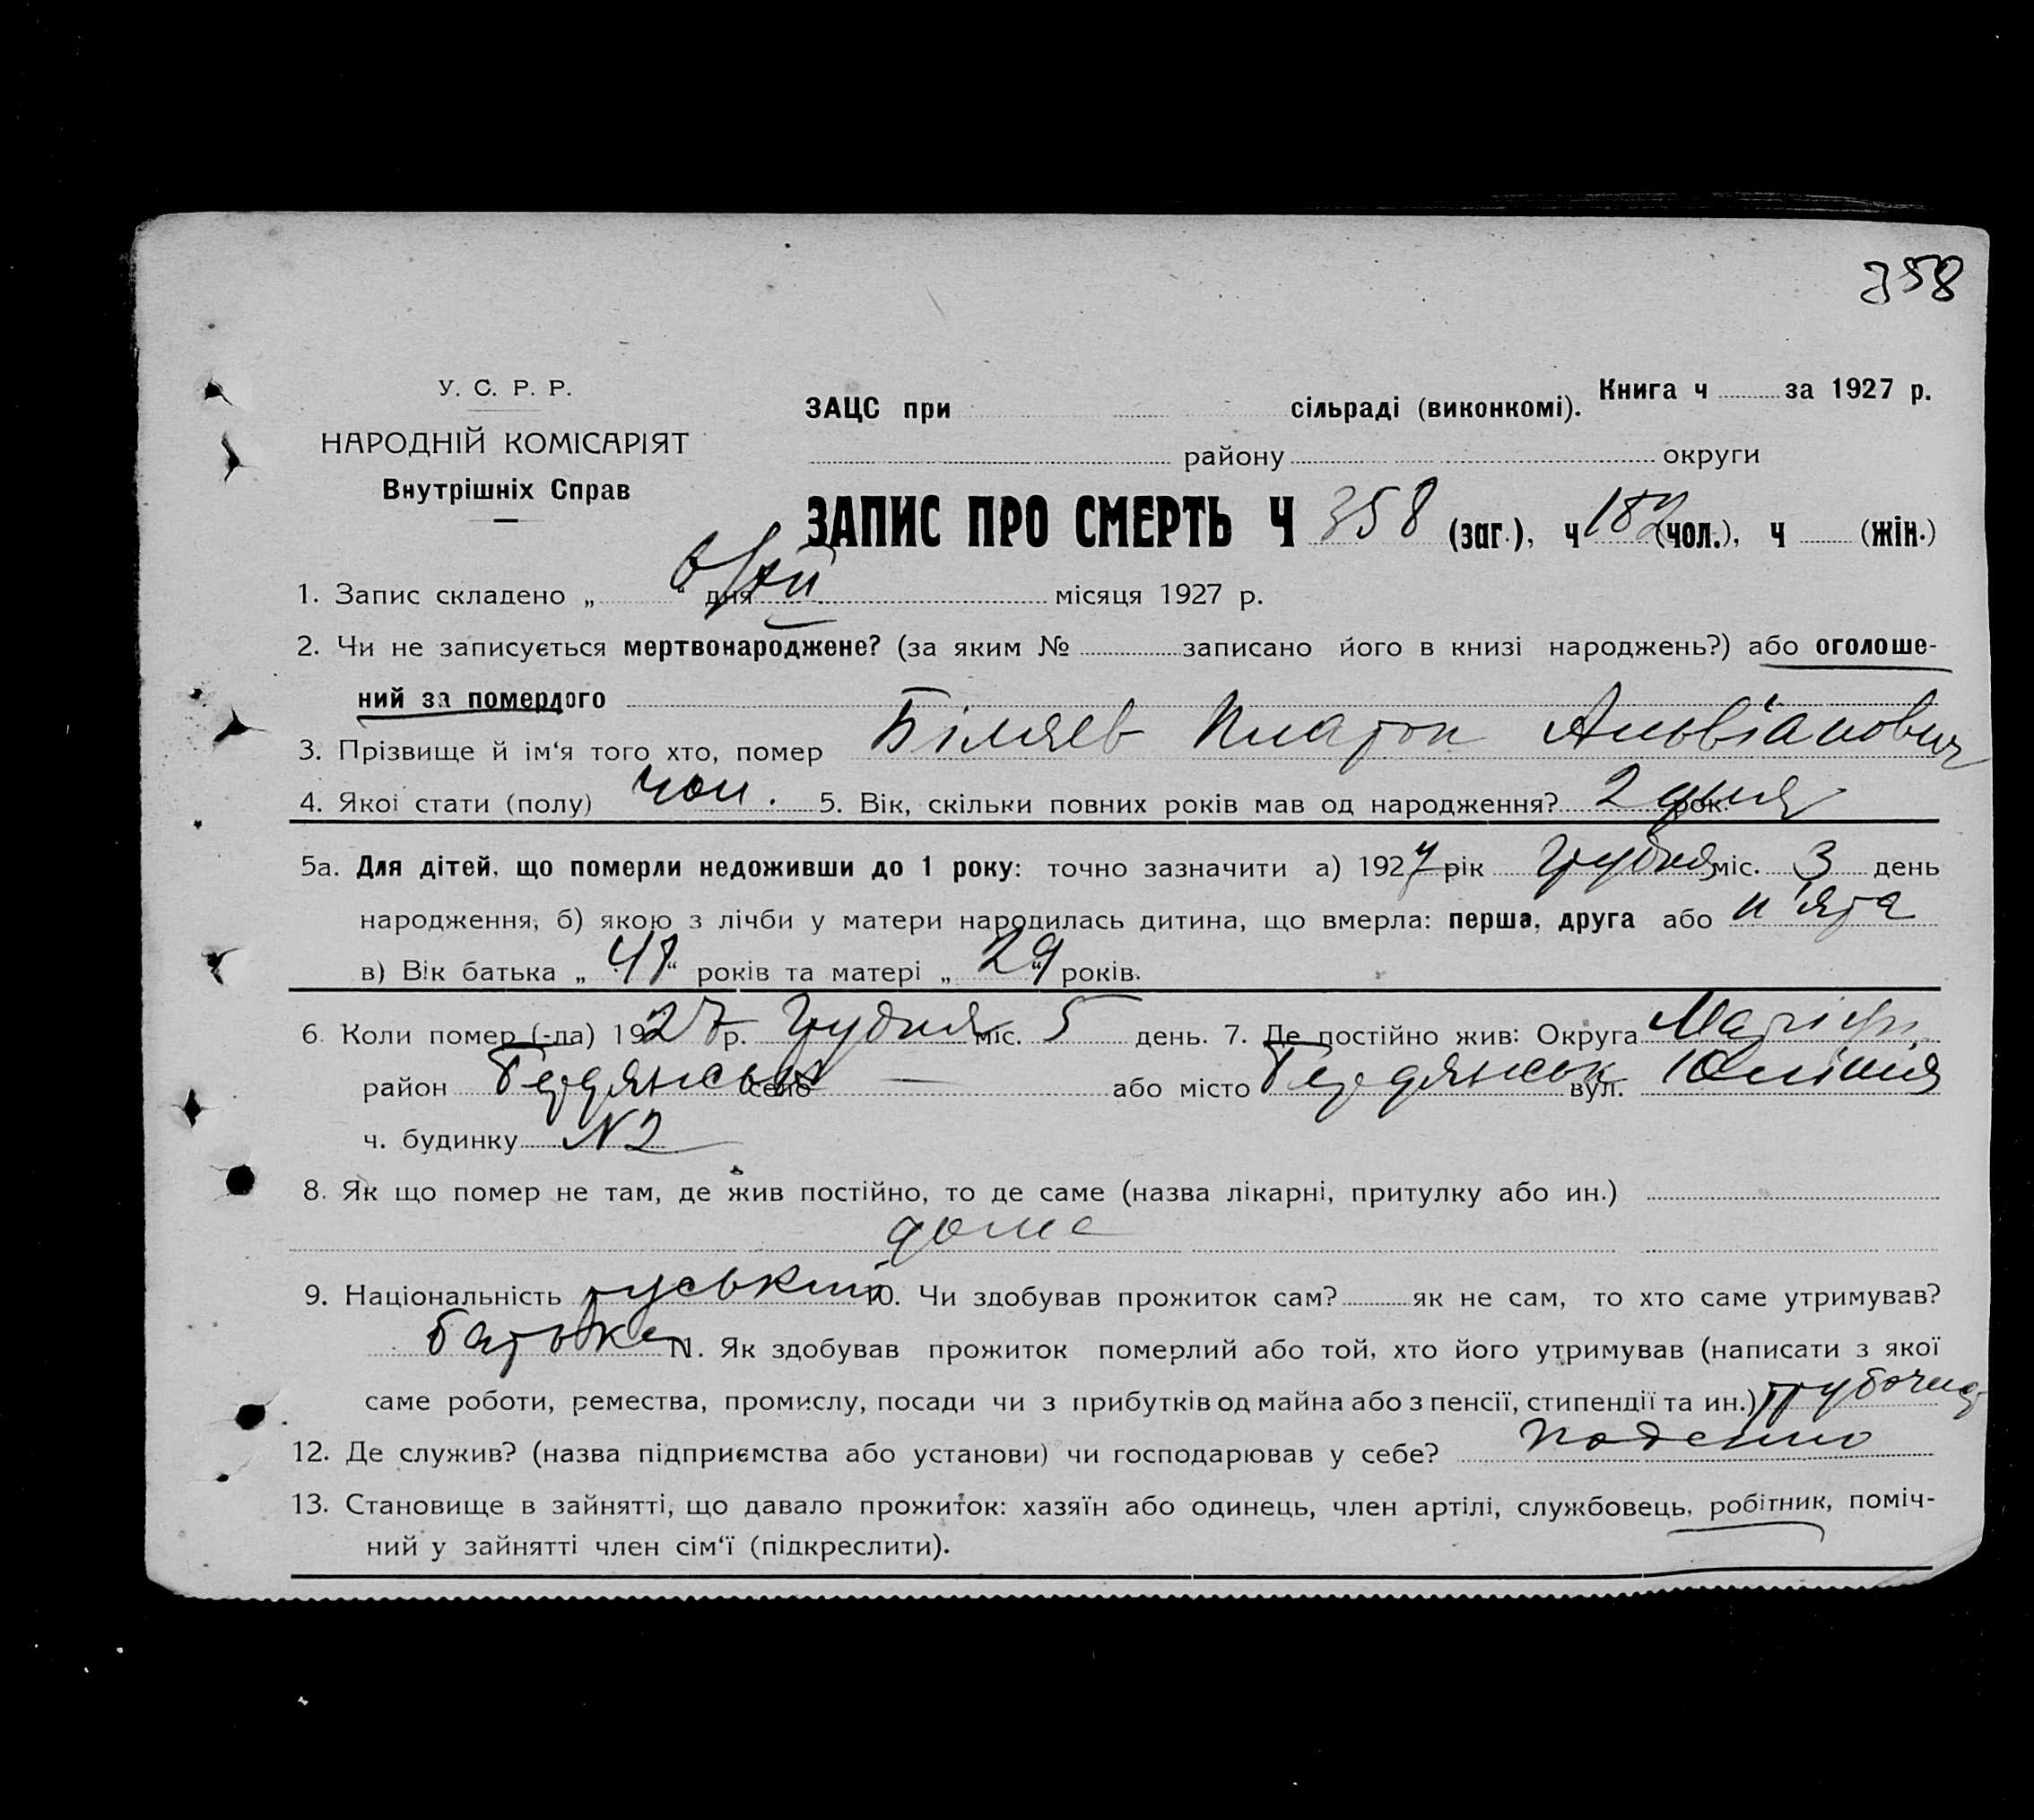 358
У. С. Р. Р.
НАРОДНІЙ КОМІСАРІЯТ
Внутрішніх Справ
ЗАЦС при сільраді (виконкомі). Книга ч за 1927 р.
району округи
ЗАПИС ПРО СМЕРТЬ Ч 358 (заг.), ч 182 (чол.), ч (жін.)
1. Запис складено „ “ дня 6/XII місяця 1927 р.
2. Чи не записується мертвонароджене? (за яким № записано його в книзі народжень?) або оголоше-
ний за помердого
3. Прізвище й ім‘я того хто, помер Біляєв Платон Альвіанович
4. Якоі стати (полу) чол. 5. Вік, скільки повних років мав од народження? 2 дня рок.
5а. Для дітей, що померли недоживши до 1 року: точно зазначити а) 1927 рік Грудня міс. 3 день
народження, б) якою з лічби у матери народилась дитина, що вмерла: перша, друга або п'ята
в) Вік батька „ 41 “ років та матері „ 29 “ років.
6. Коли помер (-ла) 1927 р. Грудня міс. 5 день. 7. Де постійно жив: Округа Маріюп.
район Бердянськ село — або місто Бердянськ вул.
ч. будинку N2
8. Як що помер не там, де жив постійно, то де саме (назва лікарні, притулку або ин.)
дома
9. Національність руський 10. Чи здобував прожиток сам? як не сам, то хто саме утримував?
батько 11. Як здобував прожиток померлий або той, хто його утримував (написати з якої
саме роботи, ремества, промислу, посади чи з прибутків од майна або з пенсії, стипендії та ин.)
12. Де служив? (назва підприємства або установи) чи господарював у себе? поденно
13. Становище в зайнятті, що давало прожиток: хазяїн або одинець, член артілі, службовець, робітник, поміч-
ний у зайнятті член сім‘ї (підкреслити).